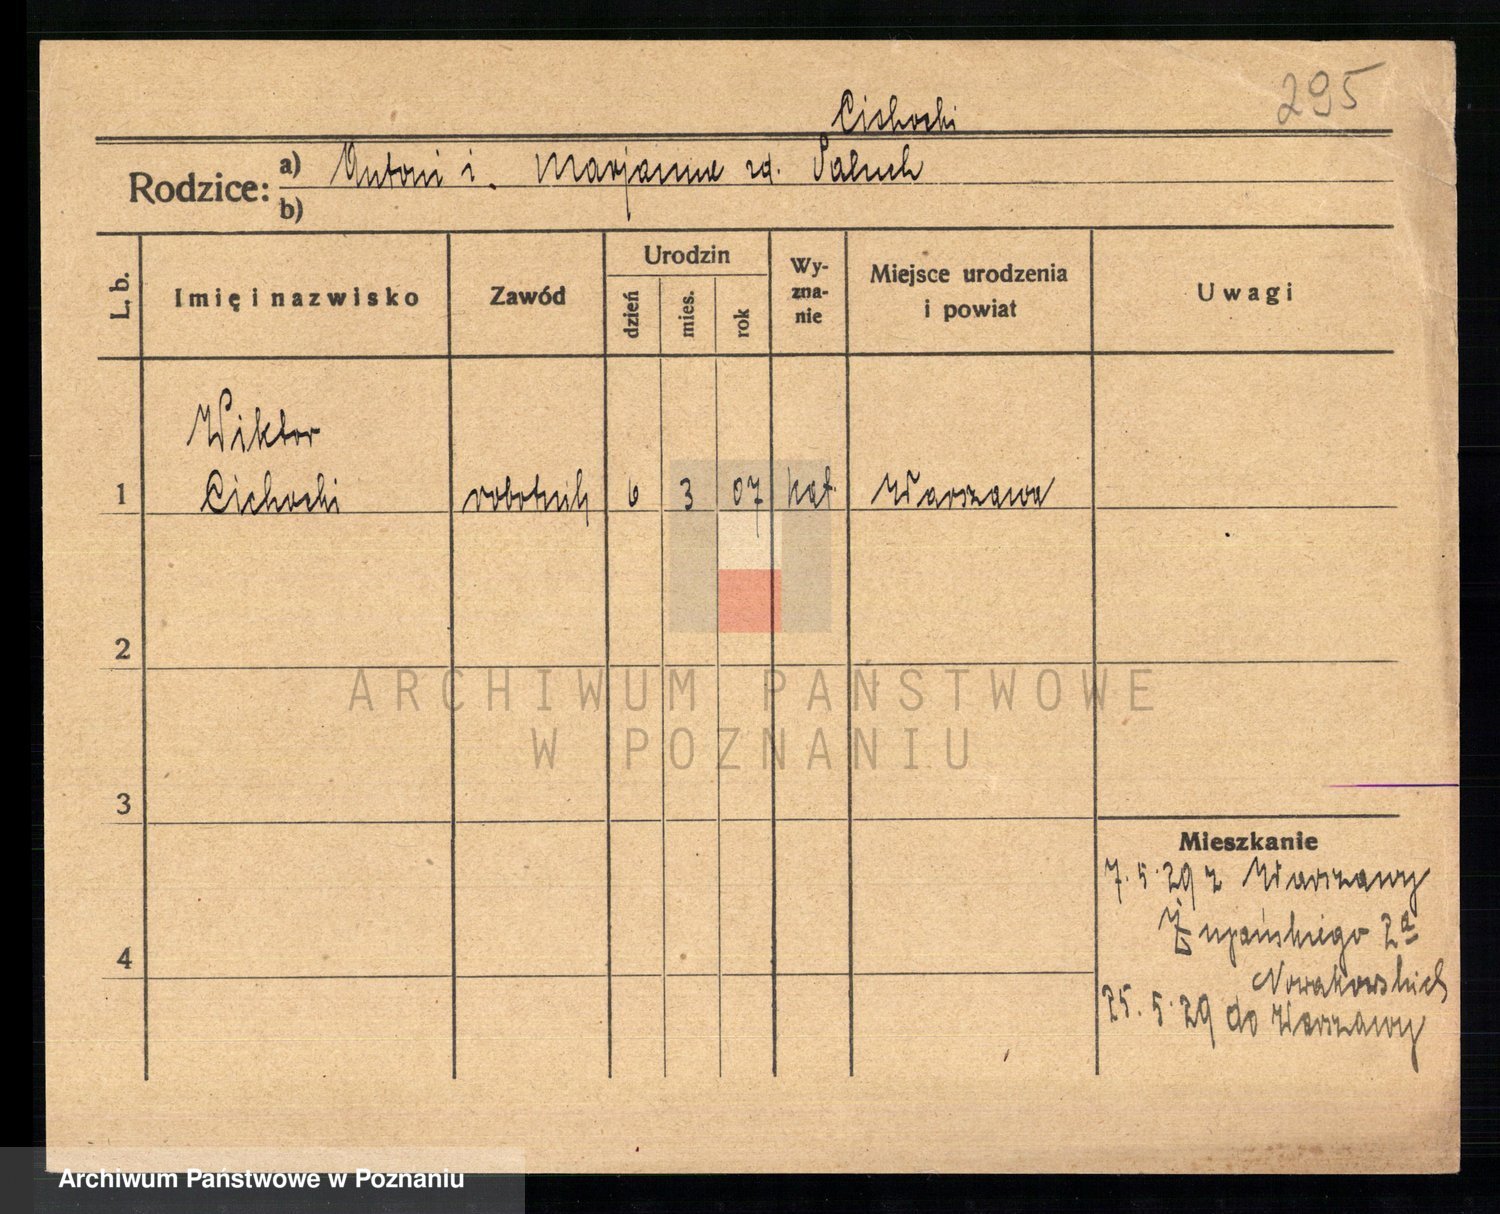 295
Cichocki
Rodzice: a) Antoni i. Marjanna zd. Paluch
b)
L. b. Imię i nazwisko Zawód Urodzin dzień mies. rok Wy-zna-nie Miejsce urodzenia i powiat Uwagi
Wiktor
1 Cichocki robotnik 6 3 07 kat. Warszawa
2
ARCHIWUM PAŃSTWOWE
W POZNANIU
3
Mieszkanie
7. 5. 29 z Warszawy
Żupańskiego 2a
4
Nowakowskich
25. 5. 29 do Warszawy
Archiwum Państwowe w Poznaniu